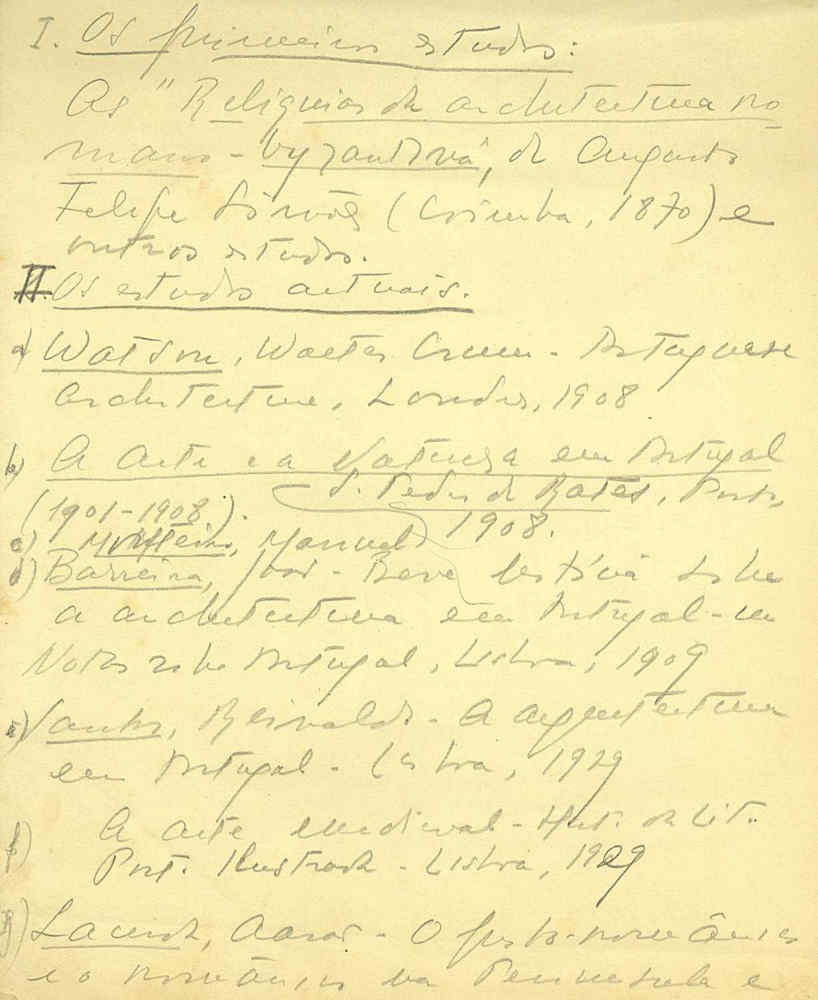 I. Os primeiros estudos:
As "Reliquias da architectura ro-
mano-byzantina", de Augusto
Felipe Simões (Coimbra, 1870) e
outros estudos.
II. Os estudos actuais.
a) Watson, Walter Crum - Portuguese
Architecture, Londres, 1908
b) A Arte e a Natureza em Portugal
(1901-1908).
S. Pedro de Rates, Porto,
1908.
c) Monteiro, Manuel
d) Barreira, João - Breve
a architectura em Portugal - in
Notas sobre Portugal, Lisboa, 1909
e) Santos, Reinaldo - A arquitectura
em Portugal - Lisboa, 1929
f) A arte medieval - Hist. da Lit.
Port. Ilustrada - Lisboa, 1929
g) Lacerda, Aarão - O proto-românico
e o românico na Peninsula e